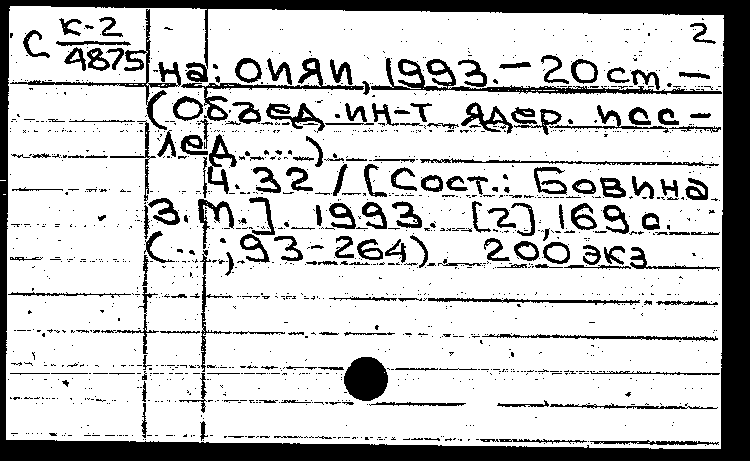 С К-2 2
4875
на: ОИЯИ, 1993. – 20 см. –
(Объед. ин-т ядер. исс-
лед. ...).
Ч. 32 / [Сост.: Бовина
З.М.]. 1993. [2], 169 с.
(...; 93-264). 200 экз